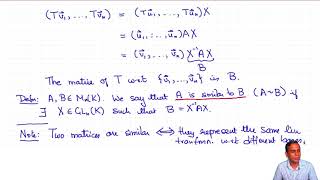 (Tv⃗₁, ..., Tv⃗ₙ) = (Tu⃗₁, ..., Tu⃗ₙ)X
= (u⃗₁, ..., u⃗ₙ)AX
= (v⃗₁, ..., v⃗ₙ) X⁻¹AX
B
The matrix of T w.r.t. {v⃗₁, ..., v⃗ₙ} is B.
Defn: A, B ∈ Mₙ(K). We say that A is similar to B (A~B) if
∃ X ∈ GLₙ(K) such that B = X⁻¹AX.
Note: Two matrices are similar ⟺ they represent the same lin
transfmn. w.r.t different bases.